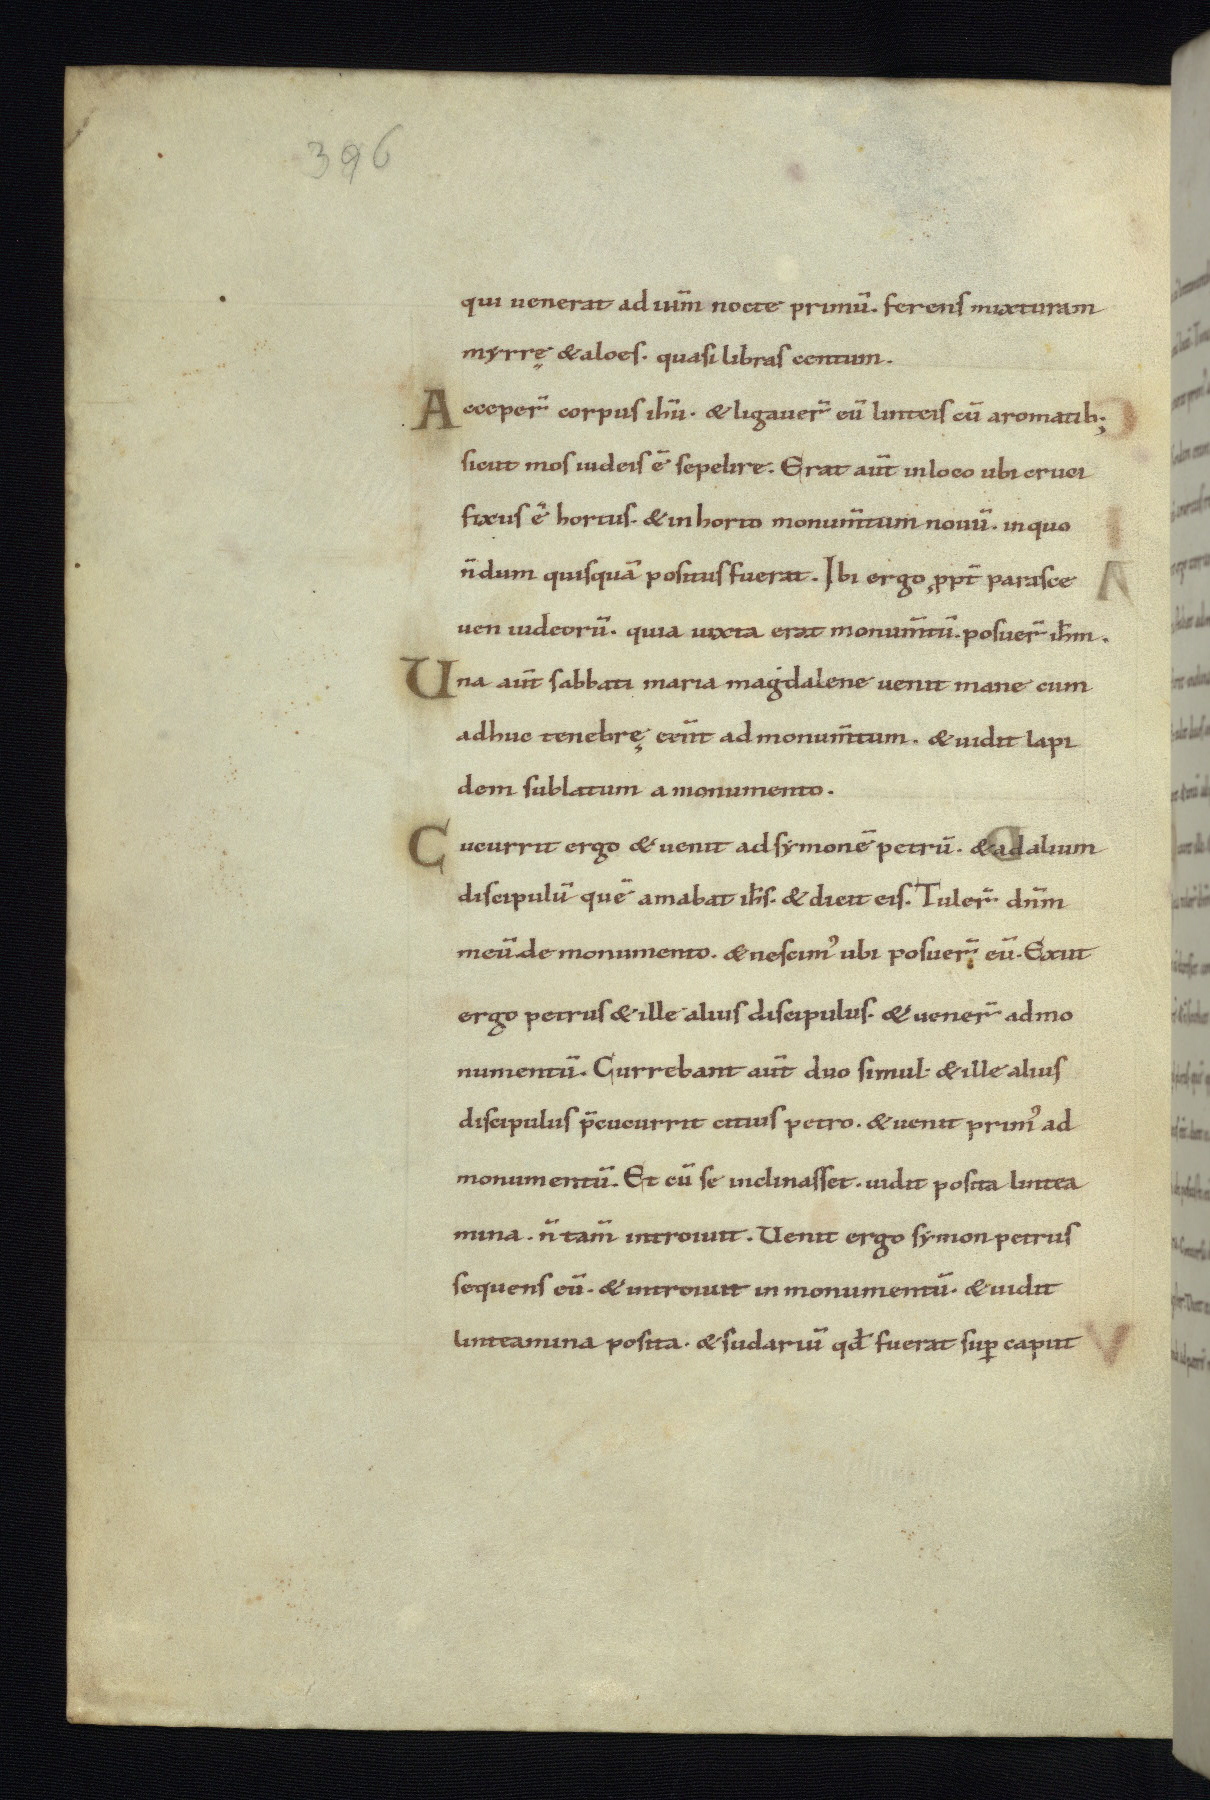 396
qui uenerat ad iu̅m nocte primu̅. ferens mixturam
myrrę & aloes. quasi libras centum.
Acceper̅ corpus ihu̅. & ligauer̅ eu̅ linteis cu̅ aromatib;
sicut mos iudeis e̅ sepelire. Erat au̅t in loco ubi cruci
fixus e̅ hortus. & in horto monum̅tum nouu̅. in quo
n̅dum quisqua̅ positus fuerat. Ibi ergo ppt̅ parasce
uen iudeoru̅. quia iuxta erat monum̅tu̅. posuer̅ ihm̅.
Una au̅t sabbati maria magdalene uenit mane cum
adhuc tenebrę ee̅nt ad monum̅tum. & uidit lapi
dem sublatum a monumento.
Cucurrit ergo & uenit ad symone̅ petru̅. & ad alium
discipulu̅ que̅ amabat ihs̅. & dicit eis. Tuler̅ dn̅m
meu̅ de monumento. & nescim᾿ ubi posuer̅ eu̅. Exiit
ergo petrus & ille alius discipulus. & uener̅ ad mo
numentu̅. Currebant au̅t duo simul. & ille alius
discipulus p̅cucurrit citius petro. & uenit prim᾿ ad
monumentu̅. Et cu̅ se inclinasset. uidit posita lintea
mina. n̅ tam̅ introiuit. Uenit ergo symon petrus
sequens eu̅. & introiuit in monumentu̅. & uidit
linteamina posita. & sudariu̅ qd̅ fuerat sup̅ caput